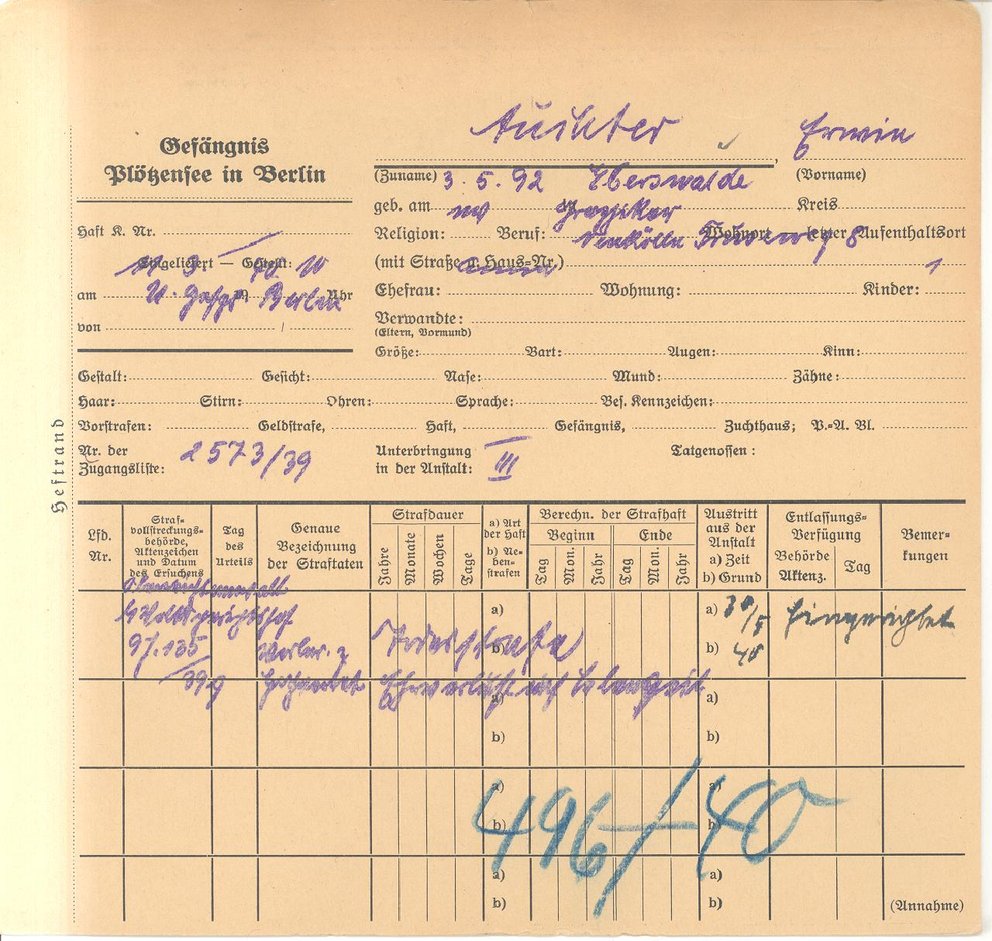 Gefängnis
Plötzensee in Berlin
Auihter, Erwin
(Zuname) (Vorname)
3. 5. 92 Eberswalde
geb. am Kreis
Grafiker
Religion: Beruf: Wohnort — letzter Aufenthaltsort
Neukölln
(mit Straße u. Haus-Nr.)
Haft K. Nr.
Eingeliefert — Gestellt:
am Uhr
Berlin
von
Ehefrau: Wohnung: Kinder: 1
Verwandte:
(Eltern, Vormund)
Größe: Bart: Augen: Kinn:
Gestalt: Gesicht: Nase: Mund: Zähne:
Haar: Stirn: Ohren: Sprache: Bes. Kennzeichen:
Vorstrafen: Geldstrafe, Haft, Gefängnis, Zuchthaus; P.-A. Bl.
Nr. der
Zugangsliste: 2573/39
Unterbringung
in der Anstalt: III
Tatgenossen:
Heftrand
Lfd.
Nr.
Straf-
vollstreckungs-
behörde,
Aktenzeichen
und Datum
des Ersuchens
Tag
des
Urteils
Genaue
Bezeichnung
der Straftaten
Strafdauer
Jahre Monate Wochen Tage
a) Art
der Haft
b) Ne-
ben-
strafen
Berechn. der Strafhaft
Beginn Ende
Tag Mon. Jahr Tag Mon. Jahr
Austritt
aus der
Anstalt
a) Zeit
b) Grund
Entlassungs-
Verfügung
Behörde
Aktenz.
Tag
Bemer-
kungen
Oberreichsanwalt
b Volksgerichtshof
9 J. 135
/39 g
Vorber. z
Hochverrat
Todesstrafe
Ehrverlust auf Lebenszeit
a) a) 30/5
b) b) 40
hingerichtet
a) a)
b) b)
a)
b) b
496/40
a) a)
b) b)
(Annahme)